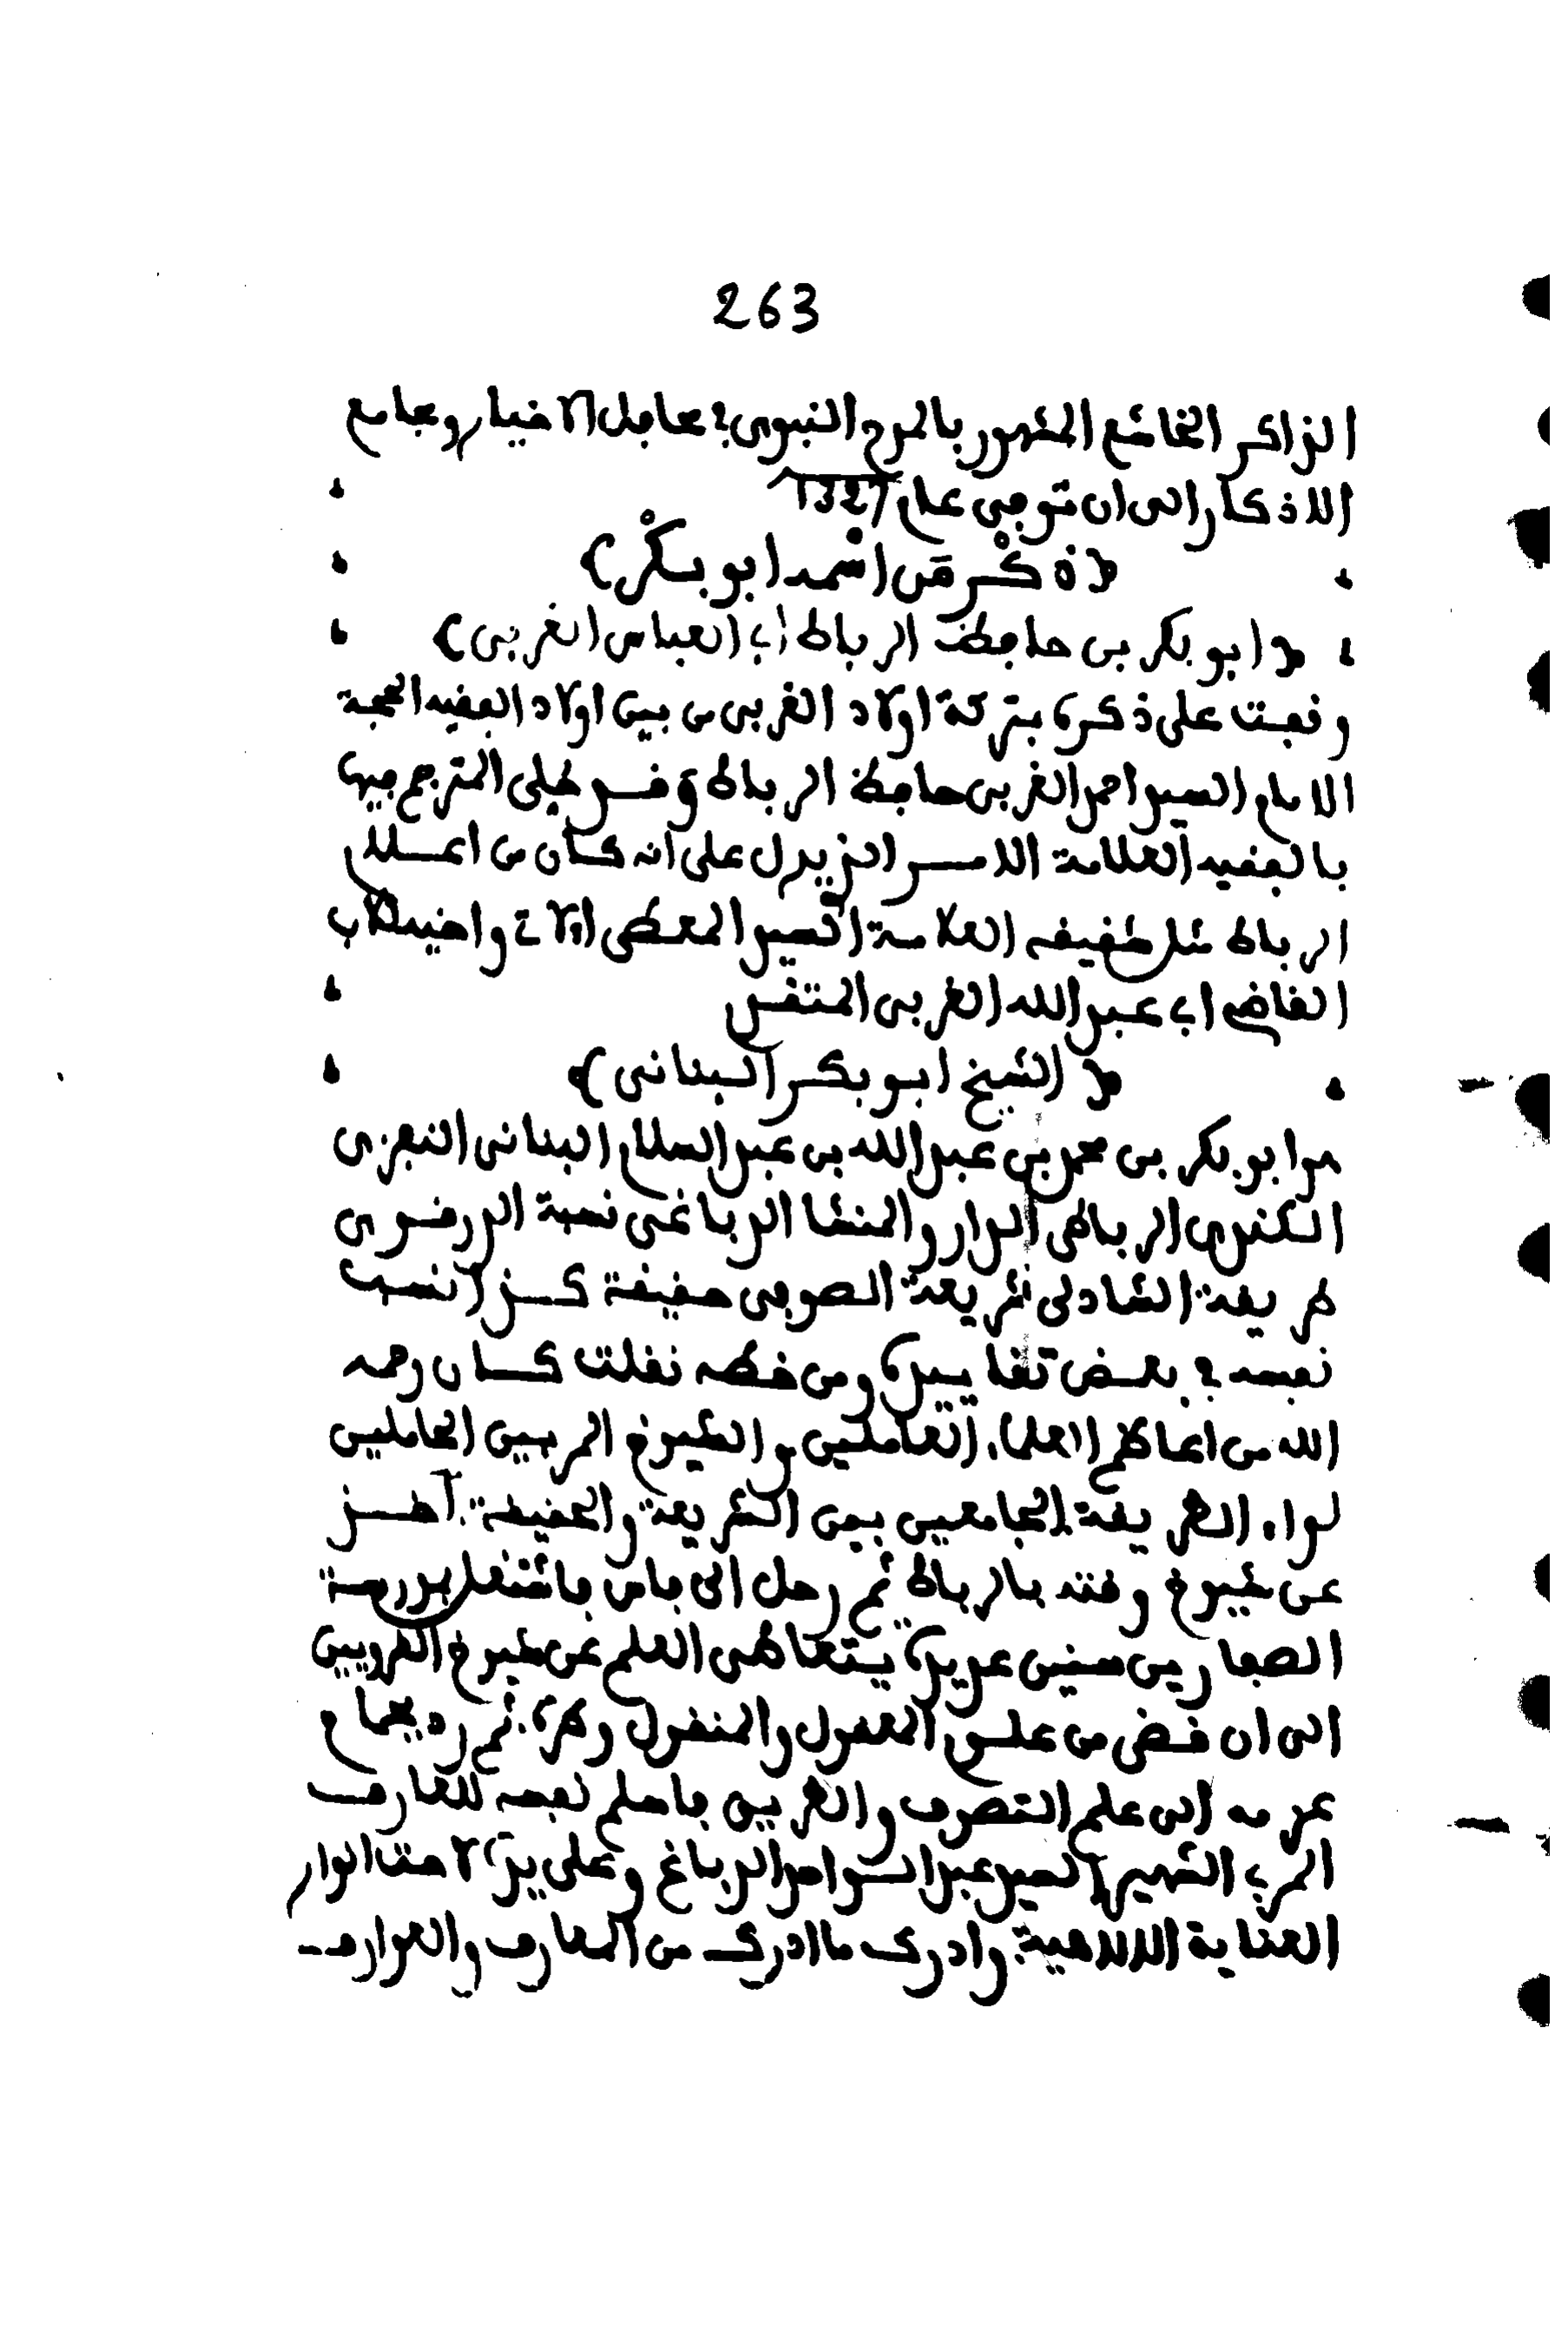 263
الذاكر الخاشع المشهور بالمدح النبوي في محافل الاخيار ومجامع
الاذكار الى ان توفي عام 1327
﴿ذكر من اسمه ابو بكر﴾
﴿ابو بكر بن حافظ الرباط ابي العباس الغربي﴾
وقفت على ذكره بتركة اولاد الغربي من بين اولاد الفقيه الحجة
الامام السيد احمد الغربي حافظ الرباط وقد حلي المترجم فيها
بالفقيه العلامة الامر الذي يدل على انه كان من اعلام
الرباط مثل شقيقه العلامة السيد المعطى الات واخيه لاب
القاضي ابي عبد الله الغربي المتقدم
﴿الشيخ ابو بكر البناني﴾
هو ابو بكر بن محمد بن عبد الله بن عبد السلام البناني النفزي
الكندي الرباطي الدار والمنشا الدباغي نسبة الدرقوي
طريقة الشاذلي شريعة الصوفي حقيقة كذا نسب
نفسه في بعض تقاييده ومن خطه نقلت كان رحمه
الله من اعاظم العلماء العاملين والشيوخ المربين الحاملين
لواء الطريقة الجامعين بين الشريعة والحقيقة اخذ
عن شيوخ وقته بالرباط ثم رحل الى فاس فاشتغل بمدرسة
الصفارين سنين عديدة يتعاطى العلم عن شيوخ القرويين
الى ان قضى من علمي المعقول والمنقول وطره ثم رد جماح
عزمه الى علم التصوف والطريق فاسلم نفسه للعارف
المربي الشهير السيد عبد الواحد الدباغ وعلى يده لاحت انوار
العناية الالاهية وادرك ما ادرك من المعارف والعوارف